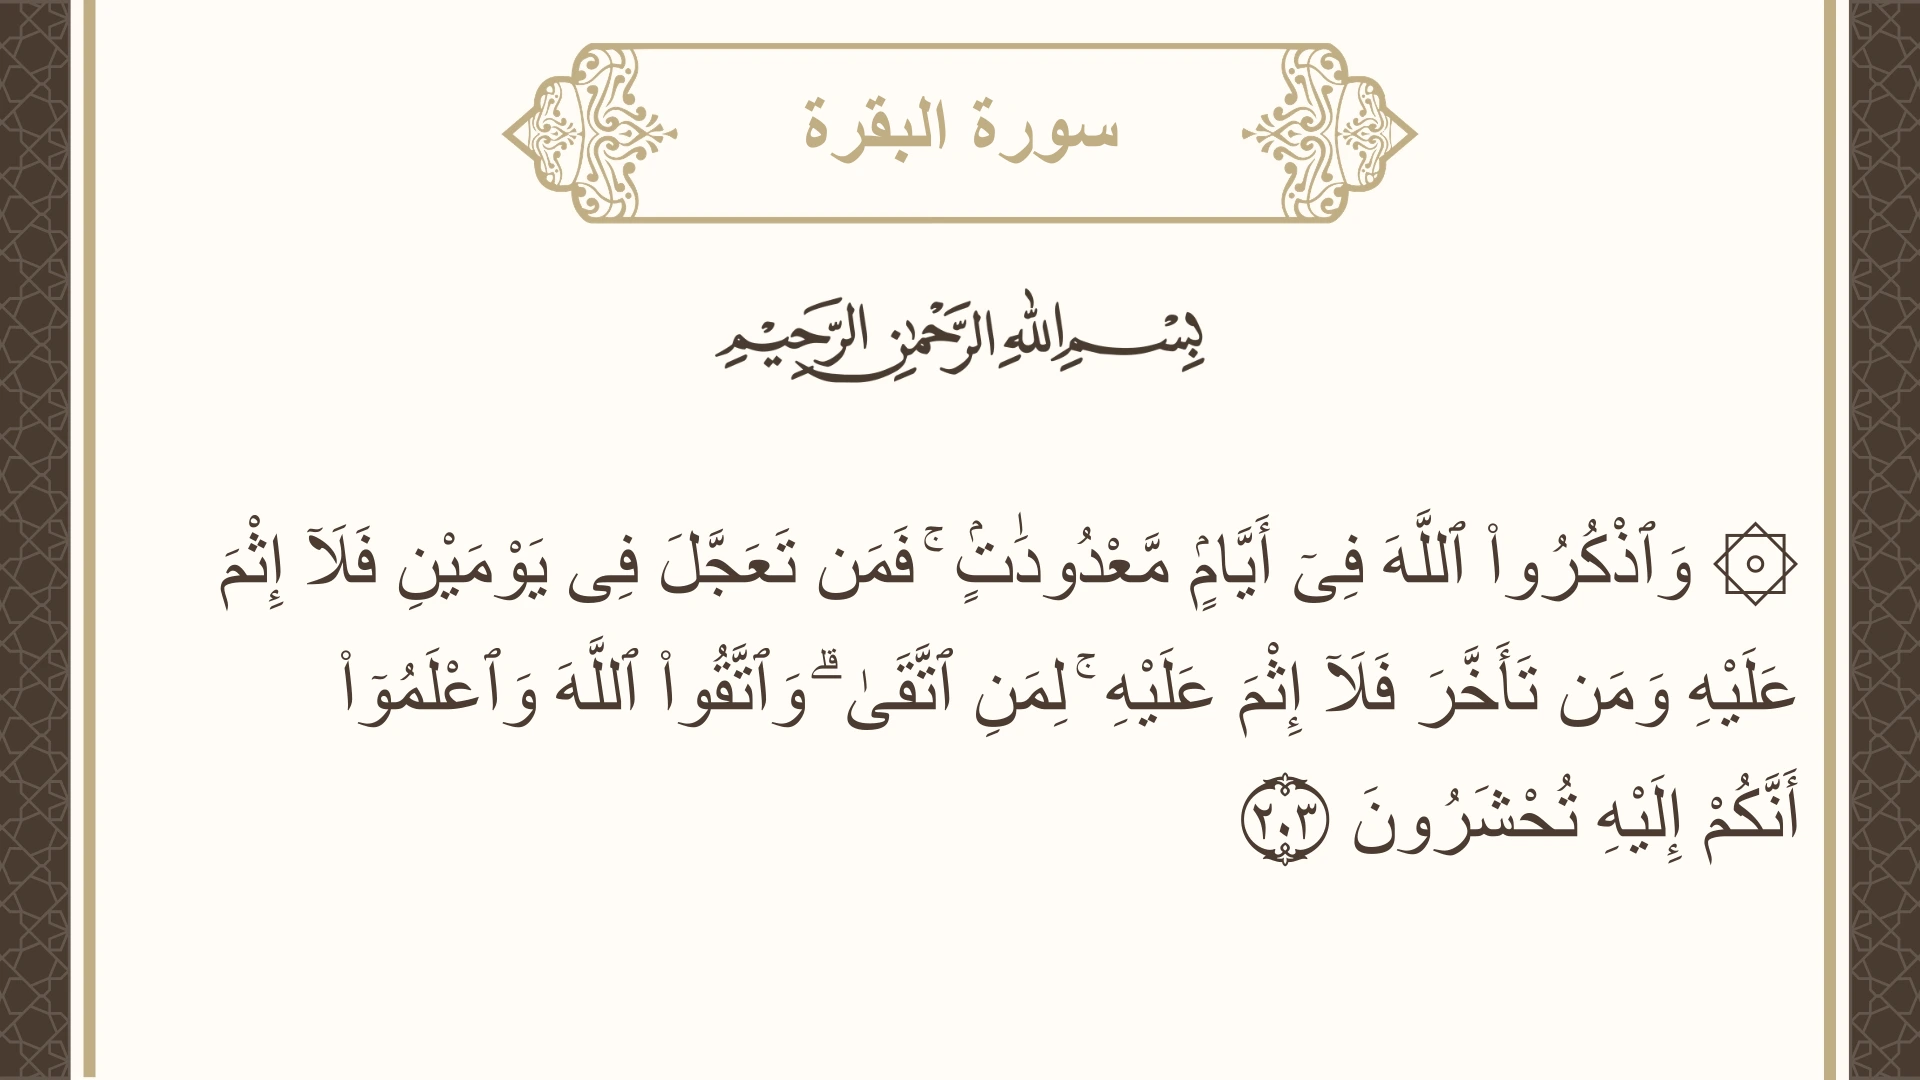 سورة البقرة
بِسْمِ اللهِ الرَّحْمٰنِ الرَّحِيْمِ
۞ وَٱذْكُرُوا۟ ٱللَّهَ فِىٓ أَيَّامٍۢ مَّعْدُودَٰتٍۢ ۚ فَمَن تَعَجَّلَ فِى يَوْمَيْنِ فَلَآ إِثْمَ
عَلَيْهِ وَمَن تَأَخَّرَ فَلَآ إِثْمَ عَلَيْهِ ۚ لِمَنِ ٱتَّقَىٰ ۗ وَٱتَّقُوا۟ ٱللَّهَ وَٱعْلَمُوٓا۟
أَنَّكُمْ إِلَيْهِ تُحْشَرُونَ ٢٠٣